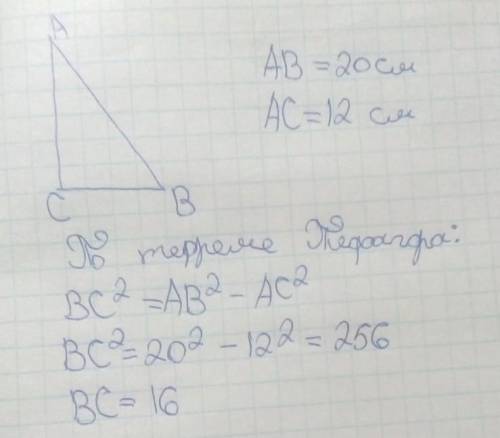 A
AB = 20 см
AC = 12 см
C B
По терреме Пифагора:
BC² = AB² - AC²
BC² = 20² - 12² = 256
BC = 16